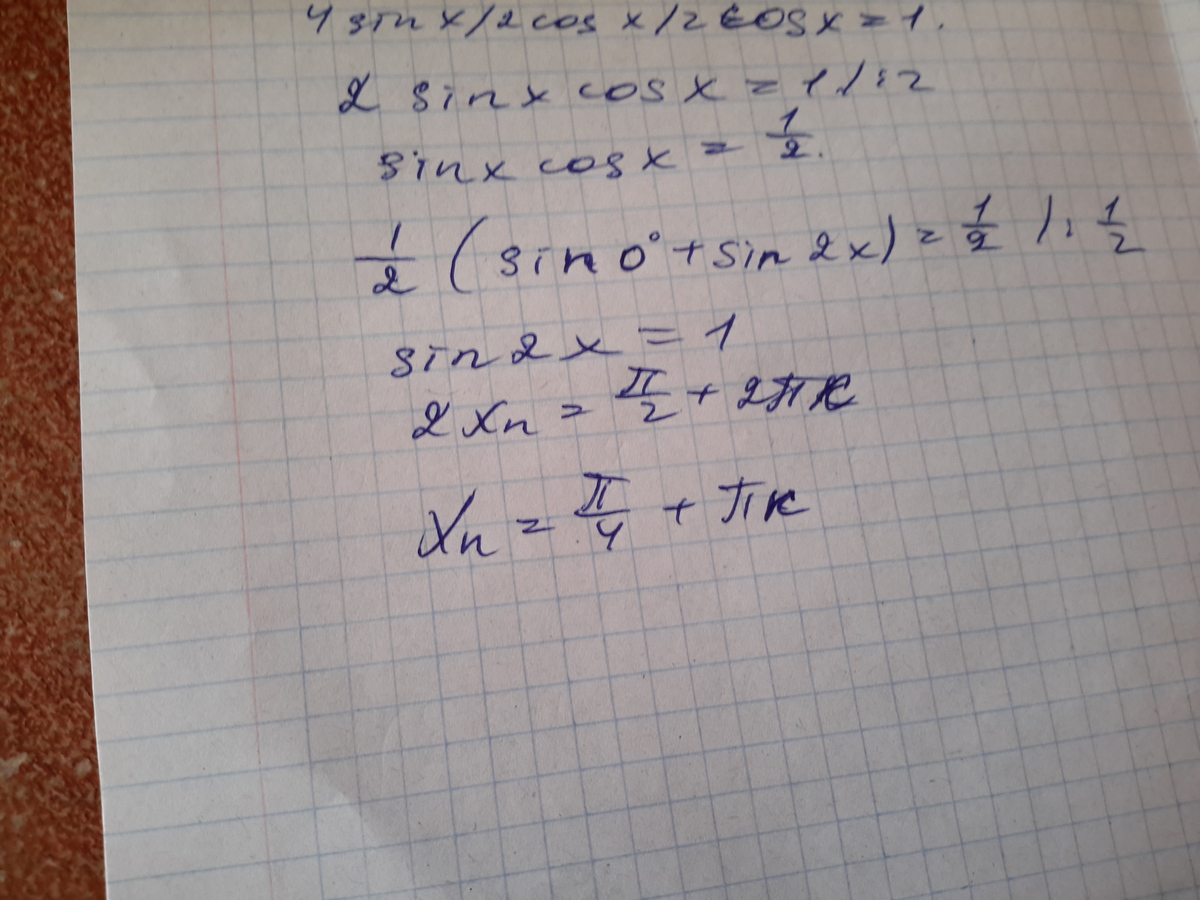 4 sin x/2 cos x/2 cos x = 1.
2 sin x cos x = 1 / : 2
sin x cos x = 1/2.
1/2 ( sin 0° + sin 2x ) = 1/2 / : 1/2
sin 2x = 1
2 xn = π/2 + 2πк
Xn = π/4 + πк